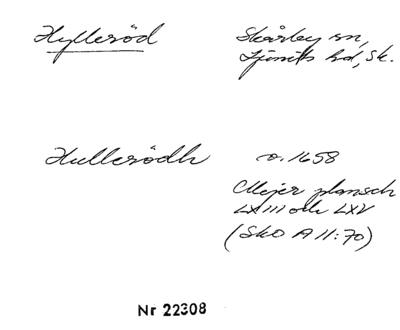 Hylleröd
Skårby sn,
Ljunits hd, Sk.
Hullerödh
o. 1658
Mejer plansch
LXIII och LXV
(SkO A 11:70)
Nr 22308